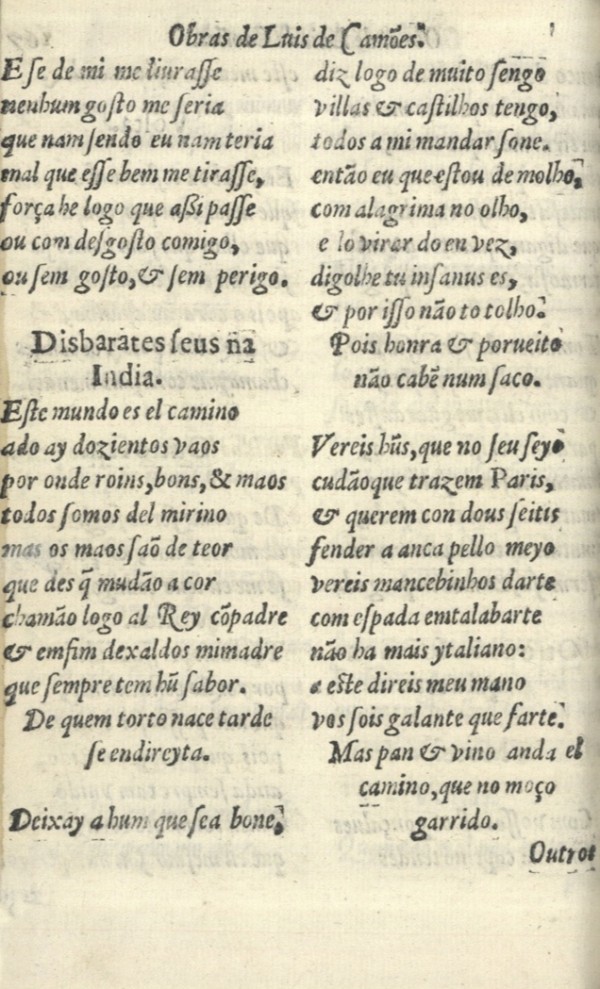 Obras de Luis de Camões.
E se de mi me liurasse
nenhum gosto me seria
que nam sendo eu nam teria
mal que esse bem me tirasse,
força he logo que aßi passe
ou com desgosto comigo,
ou sem gosto, & sem perigo.
Disbarates seus na
India.
Este mundo es el camino
ado ay dozientos vaos
por onde roins, bons, & maos
todos somos del mirino
mas os maos saõ de teor
que des q̃ mudão a cor
chamão logo al Rey cõpadre
& emfim dexaldos mimadre
que sempre tem hũ sabor.
De quem torto nace tarde
se endireyta.
Deixay a hum que se a bone,
diz logo de muito sengo
villas & castilhos tengo,
todos a mi mandar sone.
então eu que estou de molho,
com a lagrima no olho,
e lo virar do en vez,
digolhe tu insanus es,
& por isso não to tolho.
Pois honra & porueito
não cabẽ num saco.
Vereis hũs, que no seu seyo
cudão que trazem Paris,
& querem con dous seitis
fender a anca pello meyo
vereis mancebinhos darte
com espada em talabarte
não ha mais ytaliano:
a este direis meu mano
vos sois galante que farte.
Mas pan & vino anda el
camino, que no moço
garrido.
Outros